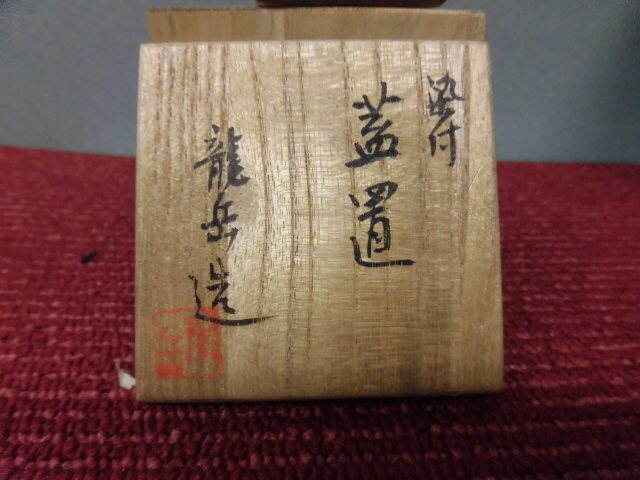 染付
蓋置
龍岳造